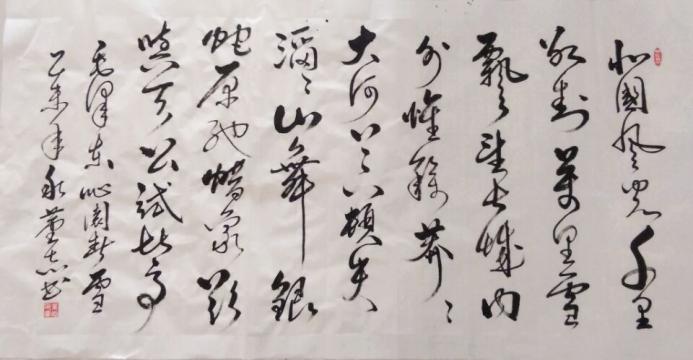 北国风光千里
冰封万里雪
飘望长城内
外惟馀莽〻
大河上下顿失
滔〻山舞银
蛇原驰蜡象欲
与天公试比高
毛泽东沁园春雪
乙未年